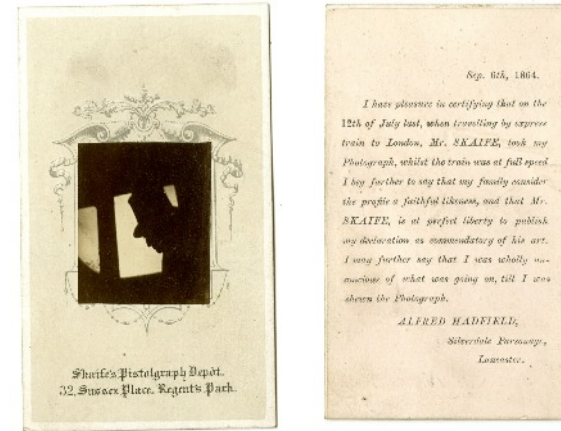 Skaife's Pistolgraph Depôt.
32, Sussex Place, Regent's Park.
Sep. 6th, 1864.
I have pleasure in certifying that on the
12th of July last, when travelling by express
train to London, Mr. SKAIFE, took my
Photograph, whilst the train was at full speed
I beg further to say that my family consider
the profile a faithful likeness, and that Mr.
SKAIFE, is at perfect liberty to publish
my declaration as commendatory of his art.
I may further say that I was wholly un-
conscious of what was going on, till I was
shewn the Photograph.
ALFRED HADFIELD,
Silverdale Parsonage,
Lancaster.